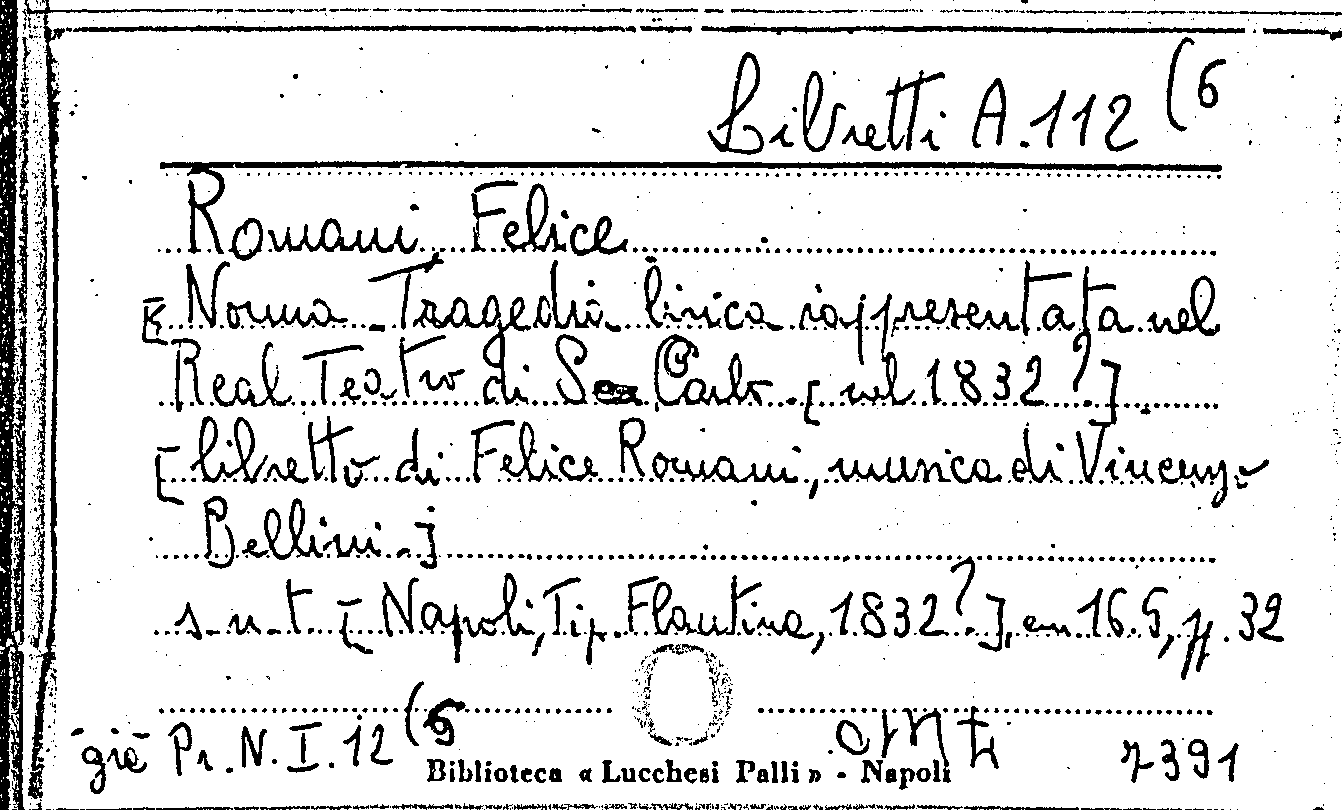 Libretti A.112 (6
Romani, Felice
[Norma - Tragedia lirica rappresentata nel
Real Teatro di S. Carlo - [nel 1832?].
[libretto di Felice Romani, musica di Vincenzo
Bellini.]
s.n.t. [Napoli, Tip. Flautina, 1832?], cm 16.5, pp. 32
già Pr. N. I. 12 (5
7391
Biblioteca « Lucchesi Palli » - Napoli